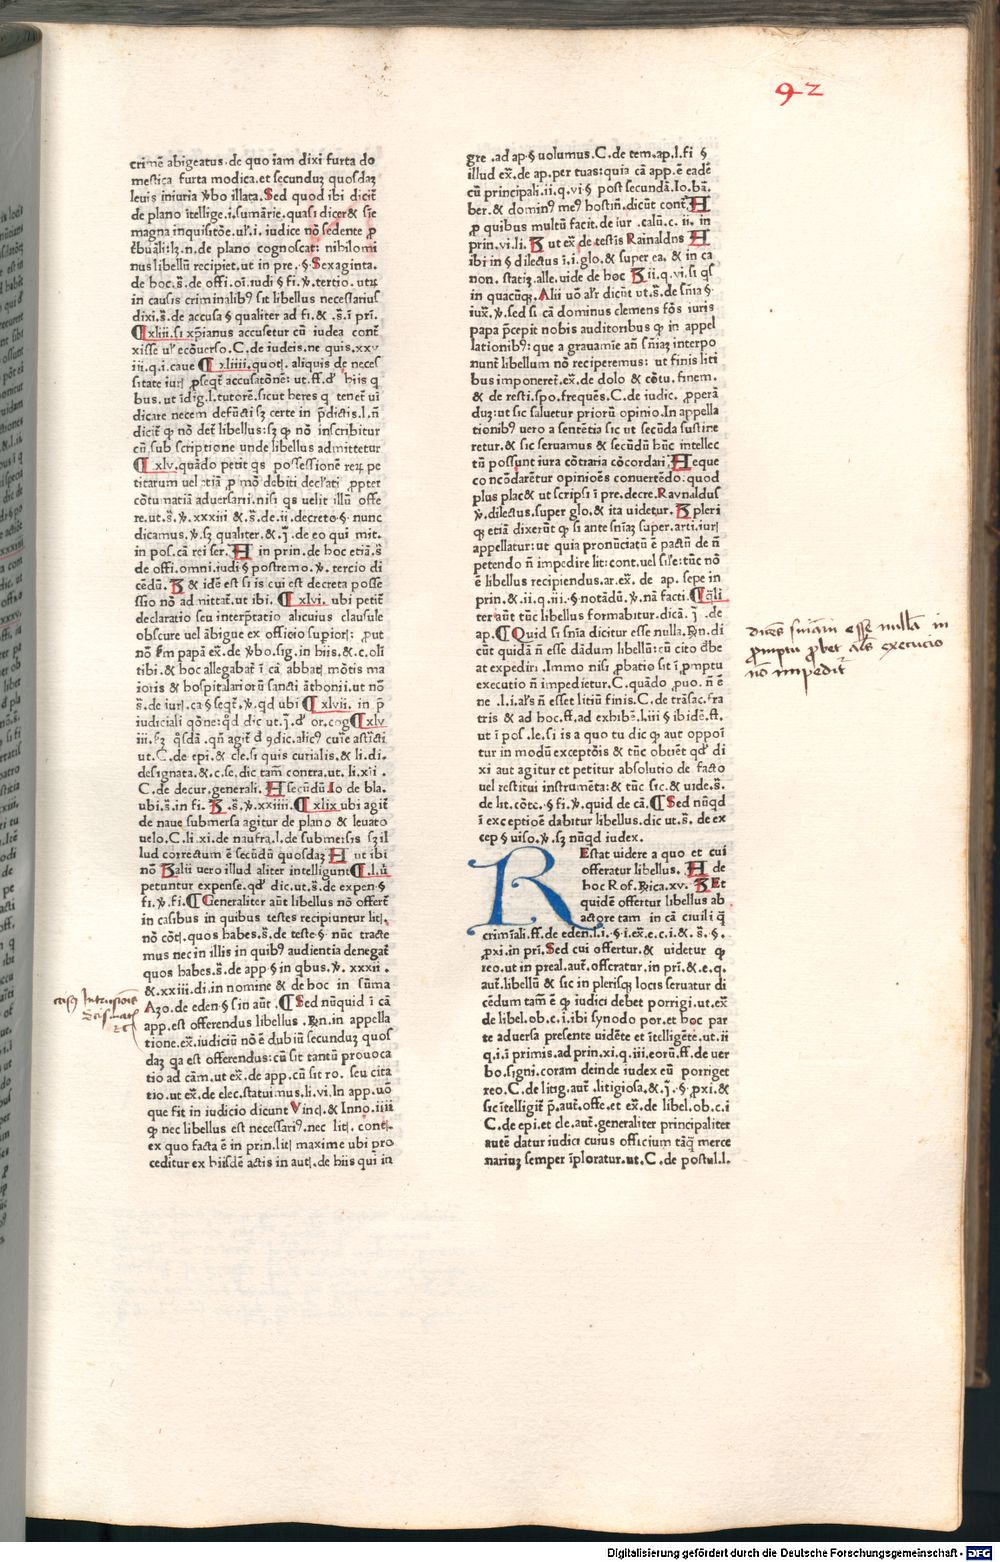 92
crimē abigeatus.de quo iam dixi furta do
mestica furta modica.et secunduʒ quosdaʒ
leuis iniuria ꝟbo illata.Sed quod ibi dicit̄
de plano ītellige.i.sumārie.quasi dicer& sie
magna inquisitōe.ul'.i. iudice nō sedente ꝓ
tbuāli:lʒ.n.de plano cognoscat: nibilomi
nus libellū recipiet.ut in pre.§.Sexaginta.
de hoc.s̄.de offi.oī.iudi § fi.ꝟ.tertio.utꝝ
in causis criminalibꝰ sit libellus necessarius
dixi.s̄.de accusa § qualiter ad fi.& .s̄.ī prī.
¶xliii.si xp̄ianus accusetur cū iudea cont̄
xisse ul' ecōuerso.C.de iudeis.ne quis.xxv
iii.q.i.caue ¶ xliiii.quot.aliquis de neces
sitate iur ꝓseqt̄ accusatōnē: ut.ff.d' hiis q
bus.ut īdig.l.tutorē.sicut heres q tenet̄ uī
dicare necem defūcti sʒ certe in p̄dictis.l.n̄
dicit̄ ꝙ nō det̄ libellus:sʒ ꝙ nō inscribitur
cū sub scriptione unde libellus admittetur
¶xlv.quādo petit qs possessionē reꝝ pe
titarum uel
cōtu natiā aduersarii.nisi qs uelit illū offe
re.ut.s̄.ꝟ.xxxiii &.s̄.de.ii.decreto.§. nunc
dicamus.ꝟ.sʒ qualiter.&.j̄.de eo qui mit.
in pos.cā rei ser. H in prin.de hoc etiā.s̄
de offi.omni.iudi § postremo.ꝟ.tercio di
cēdū. B & idē est si is cui est decreta posse
ssio nō ad mittat.ut ibi. ¶ xlvi. ubi petit̄
declaratio seu interp̄tatio alicuius clausule
obscure uel ābigue ex officio superior: put
nō fm papā ex̄.de ꝟbo.sig.in hiis.&.c.olī
tibi.& hoc allegabat̄ ī cā abbat mōtis ma
ioris & hospitalariorū sancti āthonii.ut nō
s̄.de iur.ca § seqt̄.ꝟ.qd ubi ¶xlvii. in p̄
iudiciali qōne:qd dic ut.j̄.d' or.cog¶xlv
iii.sʒ qsdā .qn̄ agit̄ d' ꝯdic.alicꝰ curīe astr̄cti
ut.C.de epi.& cle.si quis curialis.& li.di.
designata.&.c.se.dic tam contra.ut. li.xii .
C.de decur.generali. H secūdū Io de bla.
ubi.s̄.in fi. B .s̄.ꝟ.xxiiii.¶xlix ubi agit̄
de naue submersa agitur de plano & leuato
uelo.C.li.xi.de naufra.l.de submersis sʒ il
lud correctum ē secūdū quosdaʒ H ut ibi
nō B alii uero illud aliter intelligunt ¶.l.ū
petuntur expense.qd' dic.ut.s̄.de expen §
fi.ꝟ.fi.¶ Generaliter aūt libellus nō offert̄
in casibus in quibus testes recipiuntur lit.
nō cōt.quos habes.s̄.de teste § nūc tracte
mus nec in illis in quibꝰ audientia denegat̄
quos habes.s̄.de app § in qbus.ꝟ.xxxii.
&.xxiii.di.in nomine & de hoc in sūma
Azo.de eden § sin aūt .¶ Sed nūquid ī cā
app.est offerendus libellus .Rn̄.in appella
tione.ex̄.iudiciū nō ē dubiū secunduʒ quos
daʒ qa est offerendus:cū sit tantū prouoca
tio ad cām.ut ex̄.de app.cū sit ro. seu cita
tio.ut ex̄.de elec.statuimus.li.vi.In app.uō
que fit in iudicio dicunt Vinc.& Inno.iiii
ꝙ nec libellus est necessariꝰ.nec lit. conte.
ex quo facta ē in prin.lit maxime ubi pro
ceditur ex hiisdē actis in aut.de hiis qui in
casꝰ
gre .ad ap.§ uolumus.C.de tem.ap.l.fi §
illud ex̄.de ap.per tuas:quia cā app.ē eadē
cū principali.ii.q.vi § post secundā.Io.bā.
ber.& dominꝰ meꝰ hostin̄.dicūt cont̄.H
ꝓ quibus multū facit.de iur .calū.c. ii. in
prin.vi.li. B ut ex̄ de testis Rainaldus H
ibi in § dilectus ī.i.glo.& super ea. & in ca
non. statiʒ.alle.uide de hoc B ii.q.vi.si qs
in quacūqꝫ.Alii uō al'r dicūt ut.s̄.de sn̄ia §
iux̄.ꝟ.sed si cā dominus clemens fōs iuris
papa p̄cepit nobis auditoribus ꝙ in appel
lationibꝰ: que a grauamīe an̄ sn̄iaʒ interpo
nunt̄ libellum nō reciperemus: ut finis liti
bus imponeret̄.ex̄.de dolo & cōtu. finem.
& de resti.spo.frequēs.C.de iudic. ꝓperā
duʒ:ut sic saluetur priorū opinio.In appella
tionibꝰ uero a sentētia sic ut secūda sustine
retur.& sic seruamus & secūdū hūc intellec
tū possunt iura cōtraria cōcordari H eque
co ncōdarētur opinioēs conuertēdo: quod
plus plac& ut scripsi ī pre.decre.Raynaldus
ꝟ.dilectus.super glo.& ita uidetur. B pleri
qꝫ etiā dixerūt ꝙ si ante sn̄iaʒ super.arti.iur
appellatur: ut quia pronūciatū ē pactū de n̄
petendo n̄ impedire lit:cont.uel sil'e:tūc nō
ē libellus recipiendus.ar.ex̄. de ap. sepe in
prin.& .ii.q.iii.§.notādū.ꝟ.nā facti.¶Qli
ter aūt tūc libellus formabitur.dicā. j̄ .de
ap.¶Quid si sn̄ia dicitur esse nulla.Rn̄.di
cūt quidā n̄ esse dādum libellū:cū cito dbē
at expediri .Immo nisi ꝓbatio sit ī ꝓmptu
executio n̄ impedietur.C.quādo ꝓuo. n̄ ē
ne .l.i.al's n̄ esset litiū finis.C.de trāsac.fra
tris & ad hoc.ff.ad exhibē.l.iii § ibidē.ff.
ut ī pos.le.si is a quo tu dic ꝙ aut oppōi
tur in modū exceptōis & tūc obtīet qd' di
xi aut agitur et petitur absolutio de facto
uel restitui instrumēta:& tūc sic.& uide.s̄.
de lit.cōtc.§ fi.ꝟ.quid de cā.¶Sed nūqd
ī exceptioē dabitur libellus.dic ut.s̄. de ex
cep § uiso.ꝟ.sʒ nūqd iudex.
REstat uidere a quo et cui
offeratur libellus. H de
hoc Rof.Rica.xv. B Et
quidē offertur libellus ab
actore tam in cā ciuili q̄
crimīali.ff.de eden.l.i.§.i.ex̄.e.c.i.& s̄. §.
ꝓxi.in prī.Sed cui offertur.& uidetur ꝙ
reo.ut in preal.aut̄.offeratur.in prī.& e.q.
aut̄.libellū & sic in plerisqꝫ locis seruatur di
cēdum tam̄ ē ꝙ iudici debet porrigi.ut.ex̄
de libel.ob.c.i.ibi synodo por.et hoc par
te aduersa presente uidēte et ītelligēte.ut.ii
q.i.ī primis.ad prin.xi.q.iii.eorū.ff.de uer
bo.signi.coram deinde iudex eū porriget
reo.C.de litig.aut̄ .litigiosa.&.j̄.§.ꝓxi.&
sic ītelligit̄ p̄.aut̄.offe.et ex̄.de libel.ob.c.i
C.de epi.et cle.aut̄.generaliter principaliter
autē datur iudici cuius officium tāqꝫ merce
nariuʒ semper īploratur.ut.C.de postul.l.
dicēs sn̄iam esse nullā in
promptu probet als execucio
nō impedit̄
Digitalisierung gefördert durch die Deutsche Forschungsgemeinschaft - DFG